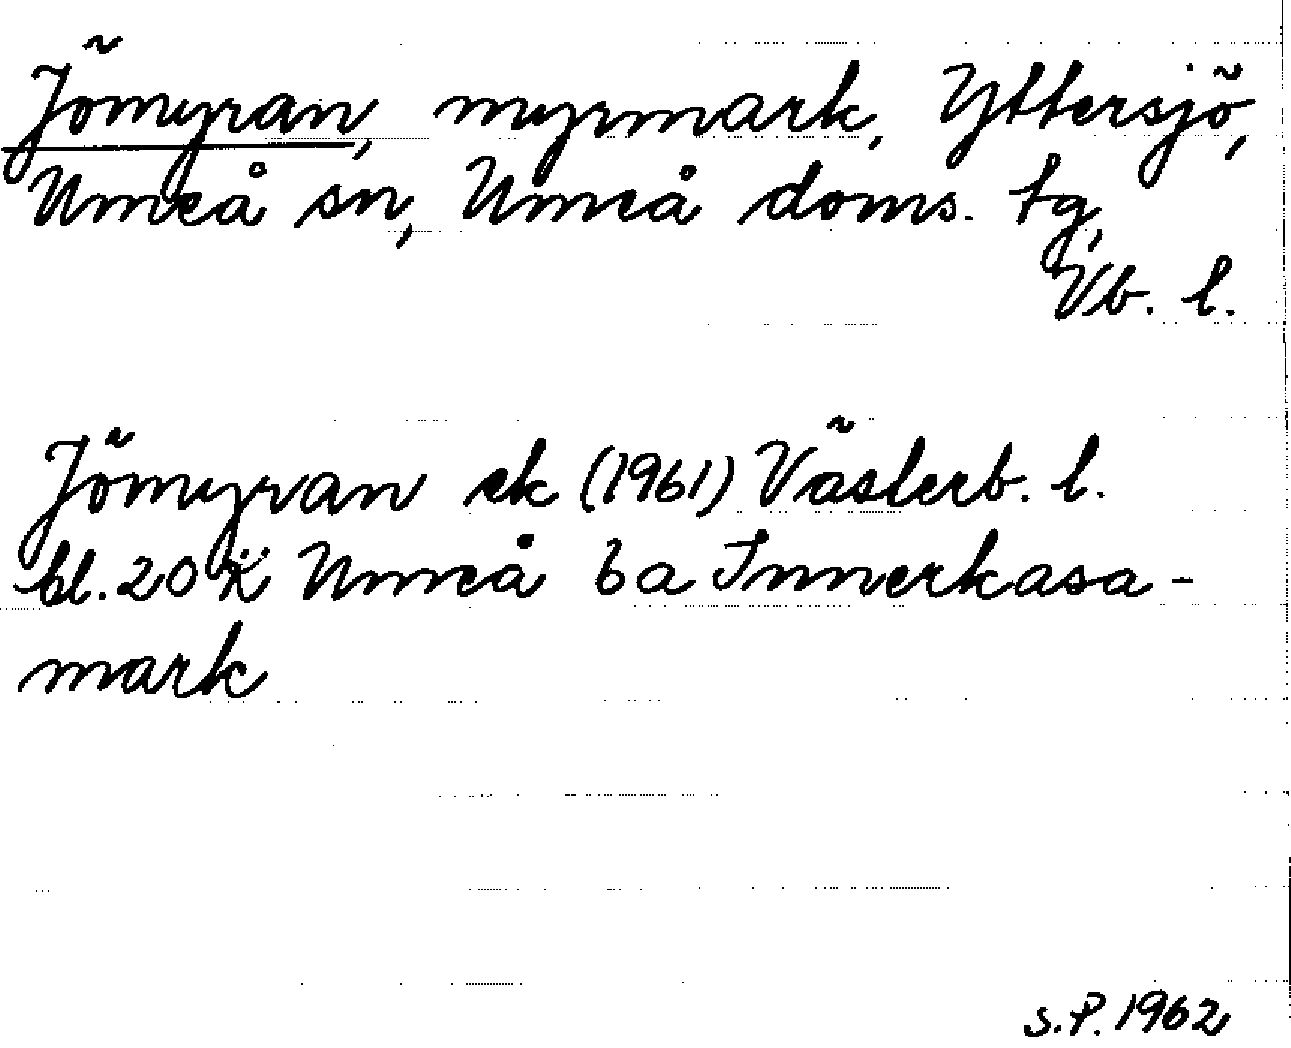 Jömyran, myrmark, Yttersjö,
Umeå sn, Umeå doms. tg,
Vb. l.
Jömyran ek (1961) Västerb. l.
bl. 20 K Umeå 6a Innerkasa-
mark
S.P. 1962